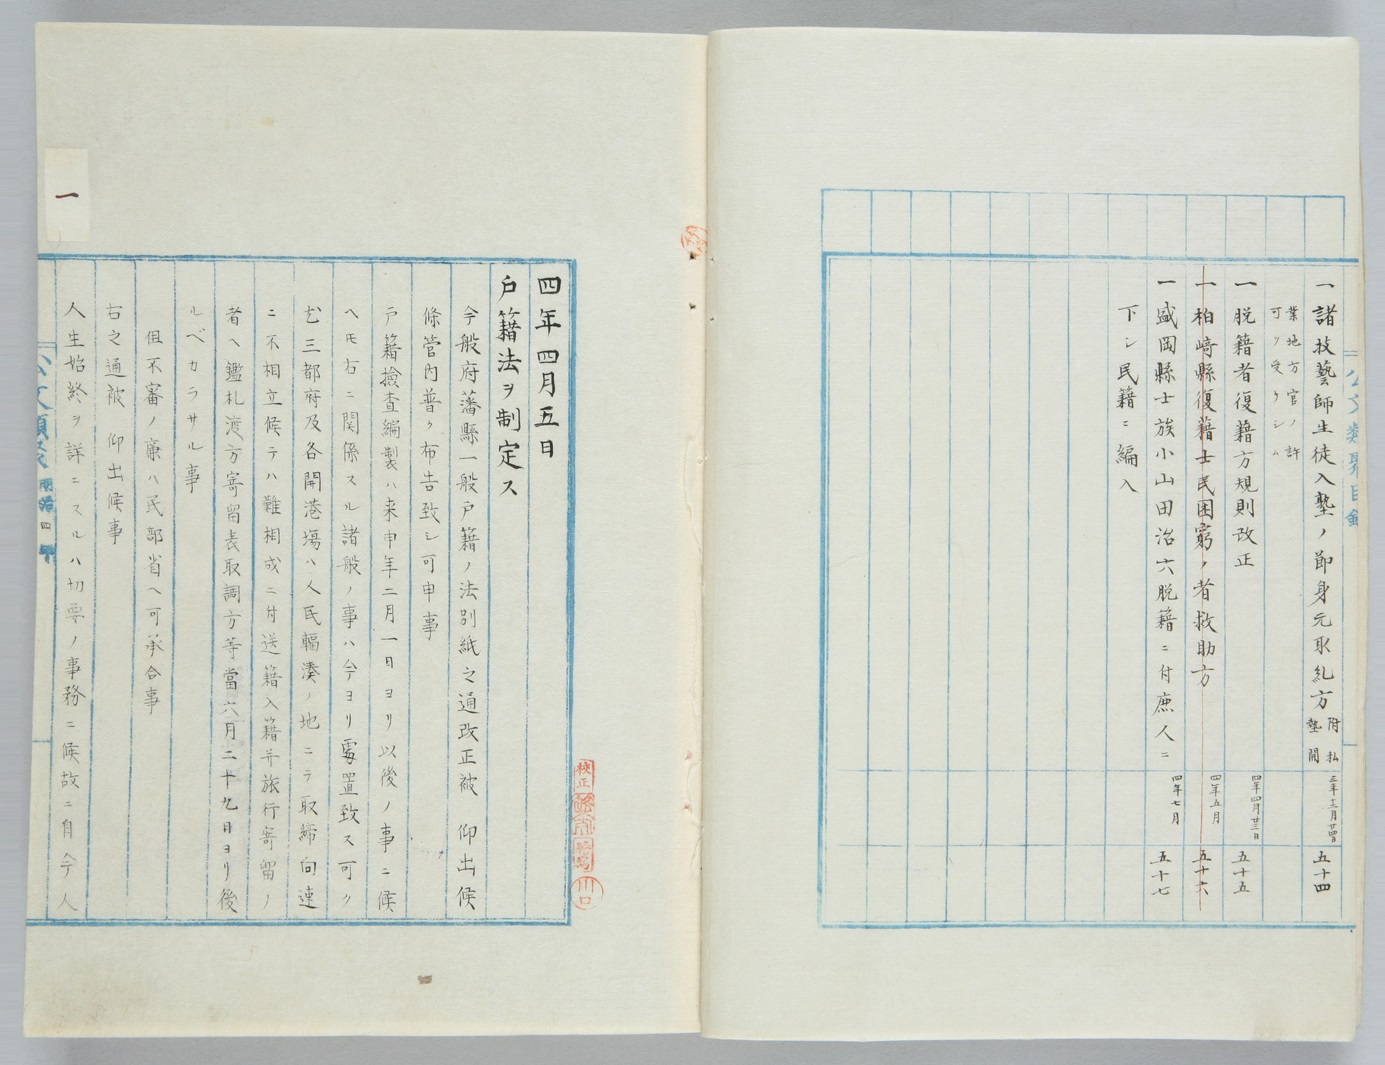 一諸技藝師生徒入塾ノ節身元取糺方 附私塾開
業地方官ノ許
可ヲ受ケシム
三年十二月廿四日
五十四
一脱籍者復籍方規則改正
四年四月廿三日
五十五
一柏﨑縣復籍士民困窮ノ者救助方
四年五月
五十六
一盛岡縣士族小山田治六脱籍ニ付庶人ニ
下シ民籍ニ編入
四年七月
五十七
公文類聚目録
四年四月五日
戸籍法ヲ制定ス
今般府藩縣一般戸籍ノ法別紙之通改正被 仰出候
條管内普ク布告致シ可申事
戸籍撿査編製ハ来申年二月一日ヨリ以後ノ事ニ候
ヘモ右ニ関係スル諸般ノ事ハ今ヨリ處置致ス可ク
尤三都府及各開港塲ハ人民輻湊ノ地ニテ取締向速
ニ不相立候テハ難相成ニ付送籍入籍并旅行寄留ノ
者ヘ鑑札渡方寄留表取調方等當六月二十九日ヨリ後
ルベカラサル事
但不審ノ廉ハ民部省ヘ可承合事
右之通被 仰出候事
人生始終ヲ詳ニスルハ切要ノ事務ニ候故ニ自今人
一
明治四年
校正
川口